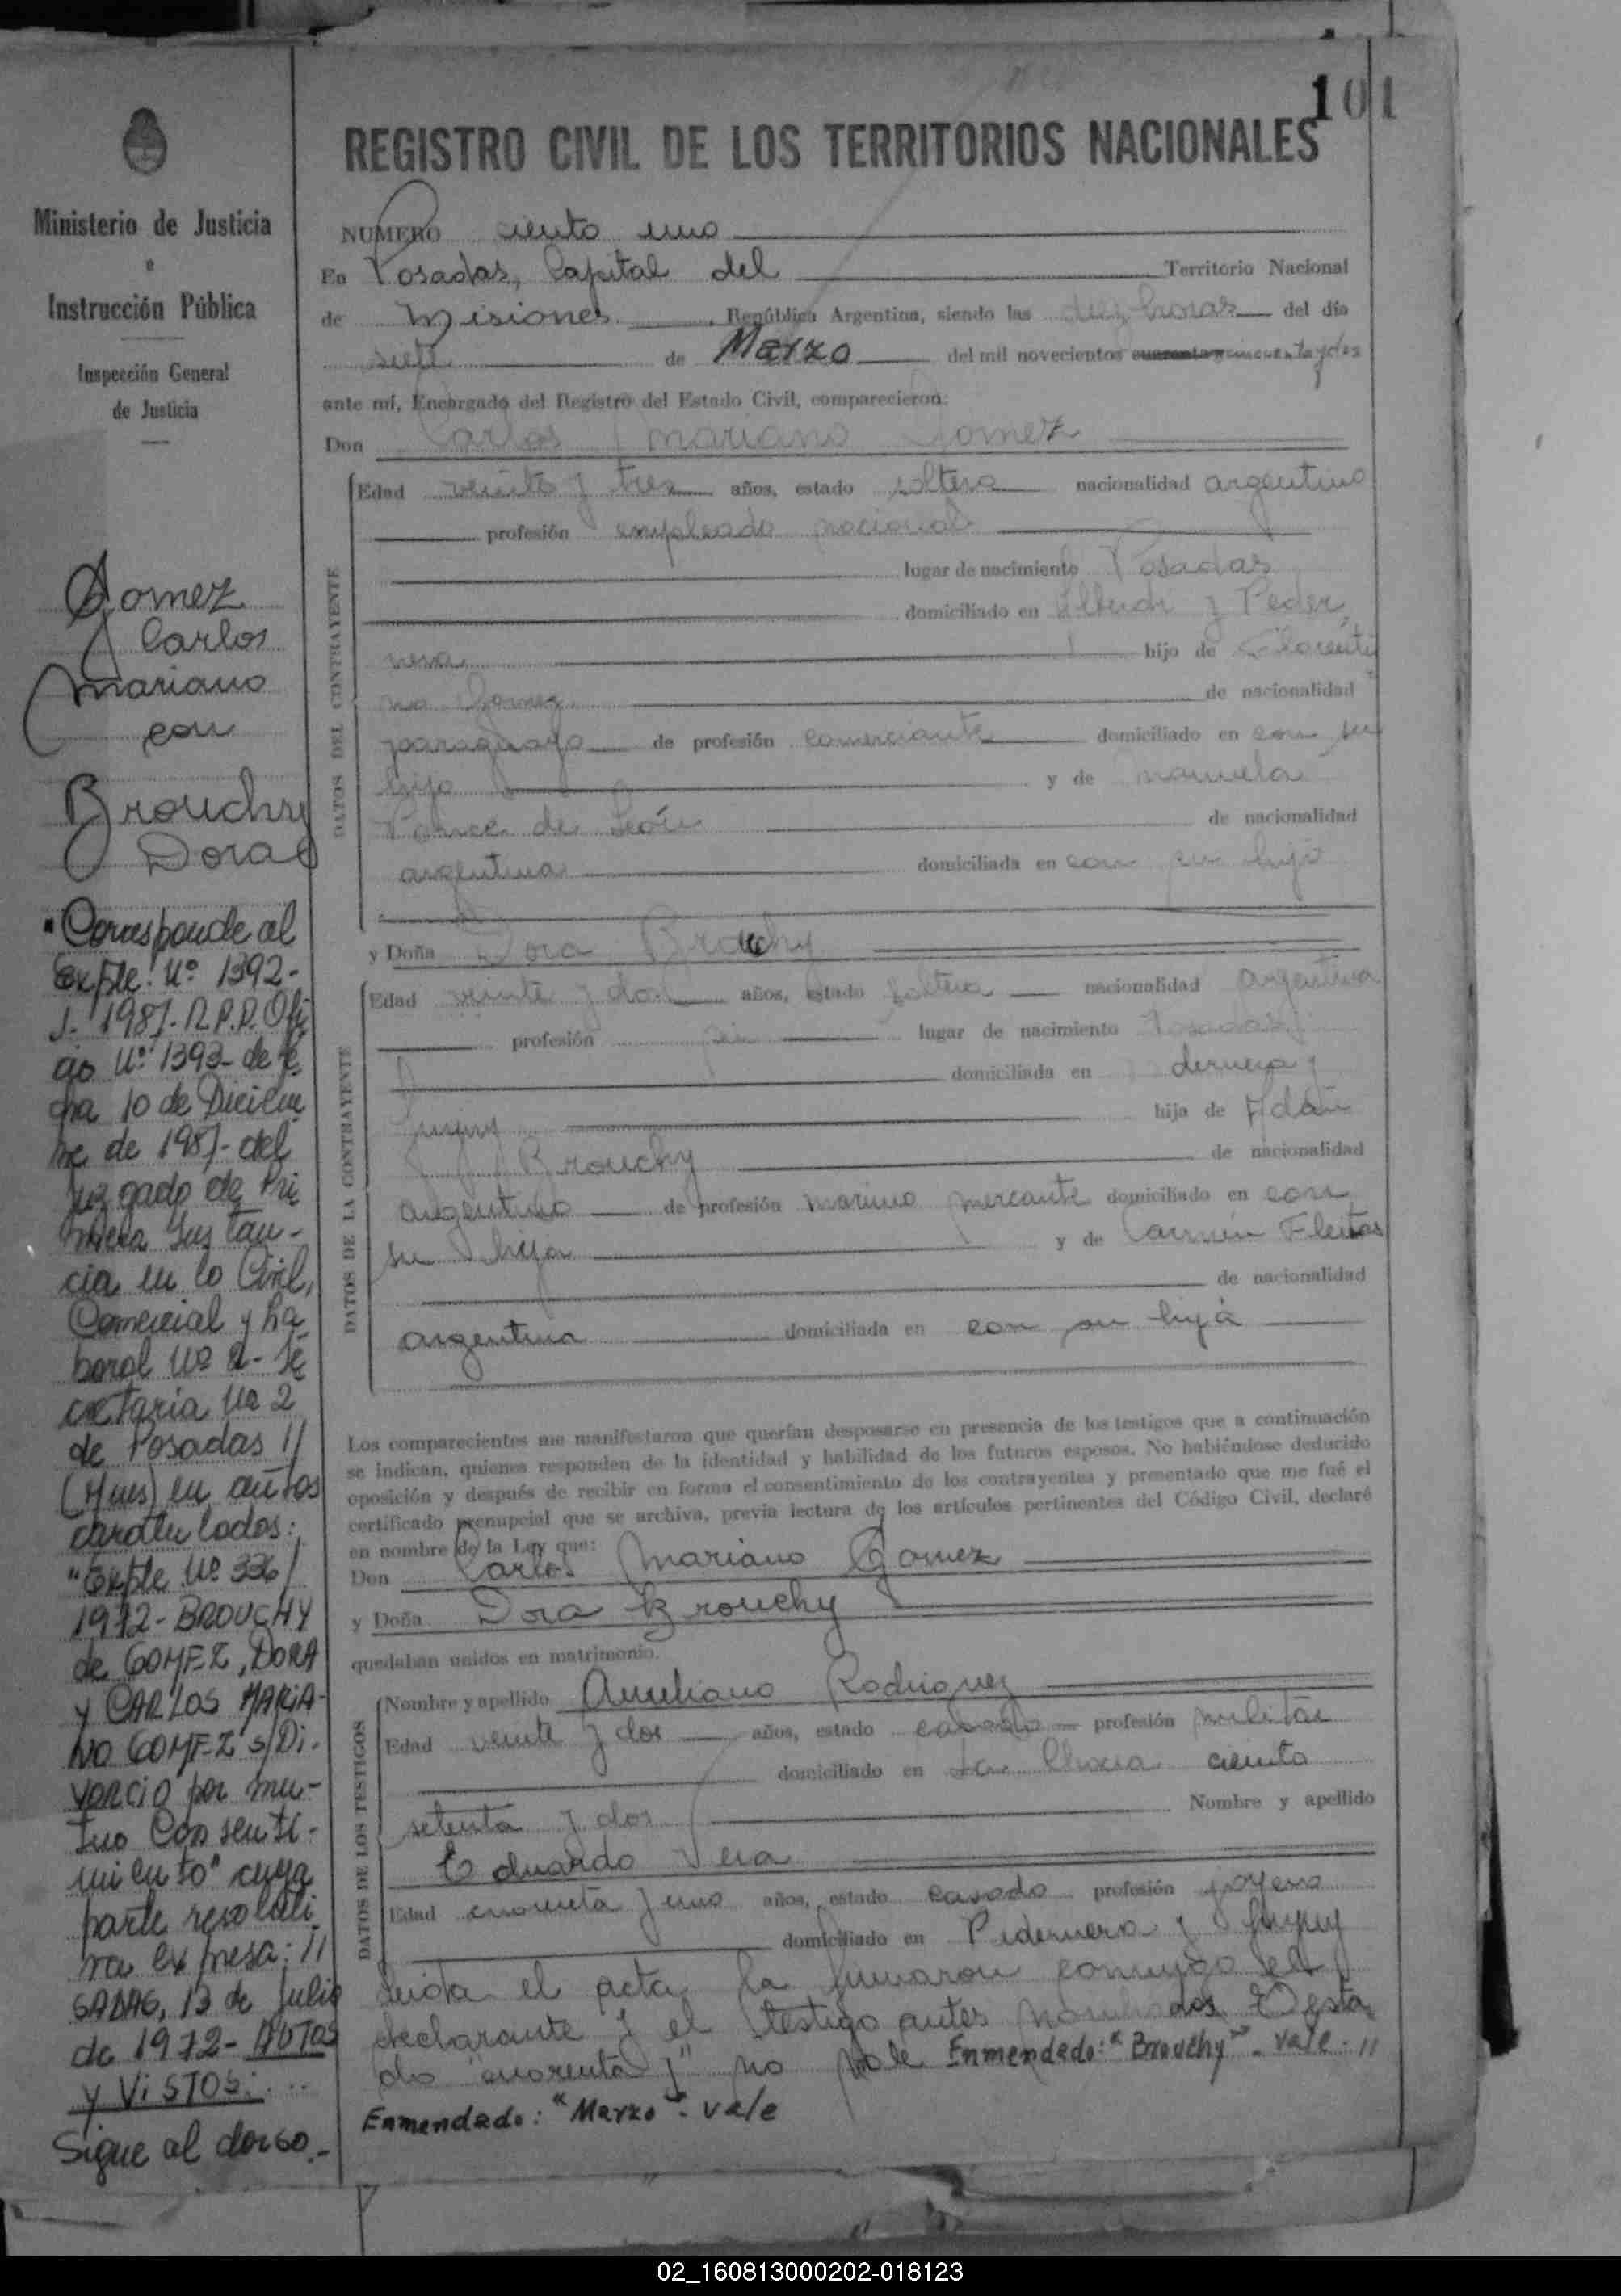 101
REGISTRO CIVIL DE LOS TERRITORIOS NACIONALES
Ministerio de Justicia
e
Instrucción Pública
Inspección General
de Justicia
NUMERO ciento uno
En Posadas, Capital del Territorio Nacional
de Misiones, República Argentina, siendo las diez horas del día
siete de Marzo del mil novecientos cuarenta y cincuenta y dos
ante mí, Encargado del Registro del Estado Civil, comparecieron:
Don Carlos Mariano Gomez
DATOS DEL CONTRAYENTE
Edad veinte y tres años, estado soltero nacionalidad argentino
profesión empleado nacional
lugar de nacimiento Posadas
domiciliado en Alberdi y Peder
nera hijo de Florenti
no Gomez de nacionalidad
paraguayo de profesión comerciante domiciliado en con su
hijo y de Manuela
Ponce de León de nacionalidad
argentina domiciliada en con su hijo
y Doña Dora Brouchy
DATOS DE LA CONTRAYENTE
Edad veinte y dos años, estado soltera nacionalidad argentina
profesión sin lugar de nacimiento Posadas
domiciliada en dernera y
Jujuy hija de Adán
Brouchy de nacionalidad
argentino de profesión marino mercante domiciliado en con
su hija y de Carmen Fleitas
de nacionalidad
argentina domiciliada en con su hija
Los comparecientes me manifestaron que querían desposarse en presencia de los testigos que a continuación
se indican, quienes responden de la identidad y habilidad de los futuros esposos. No habiéndose deducido
oposición y después de recibir en forma el consentimiento de los contrayentes y presentado que me fué el
certificado prenupcial que se archiva, previa lectura de los artículos pertinentes del Código Civil, declaré
en nombre de la Ley que:
Don Carlos Mariano Gomez
y Doña Dora Brouchy
quedaban unidos en matrimonio.
DATOS DE LOS TESTIGOS
Nombre y apellido Aureliano Rodriguez
Edad veinte y dos años, estado casado profesión militar
domiciliado en ciento
setenta y dos Nombre y apellido
Eduardo Vera
Edad cuarenta y uno años, estado casado profesión joyero
domiciliado en Pedernera y Jujuy
Leida el acta la firmaron conmigo el
declarante y el testigo antes nombrados Testa
do "cuarenta y" no vale Enmendado: "Brouchy" - vale - //
Enmendado: "Marzo" - vale
Gomez
Carlos
Mariano
con
Brouchy
Dora
"Corresponde al
Expte. Nº 1392-
1987- R.P.P. Ofi
cio Nº 1393- de fe
cha 10 de Diciem
bre de 1987- del
Juzgado de Pri
mera Instan-
cia en lo Civil,
Comercial y La
boral Nº 2- Se
cretaria Nº 2
de Posadas //
(Mnes) en autos
caratulados:
"Expte Nº 336/
1972- BROUCHY
de GOMEZ, DORA
y CARLOS MARIA-
NO GOMEZ s/Di-
vorcio por mu-
tuo Consenti-
miento" cuya
parte resoluti
va expresa: //
SADAS, 13 de Julio
de 1972- AUTOS
y VISTOS: ...
Sigue al dorso.-
02_160813000202-018123